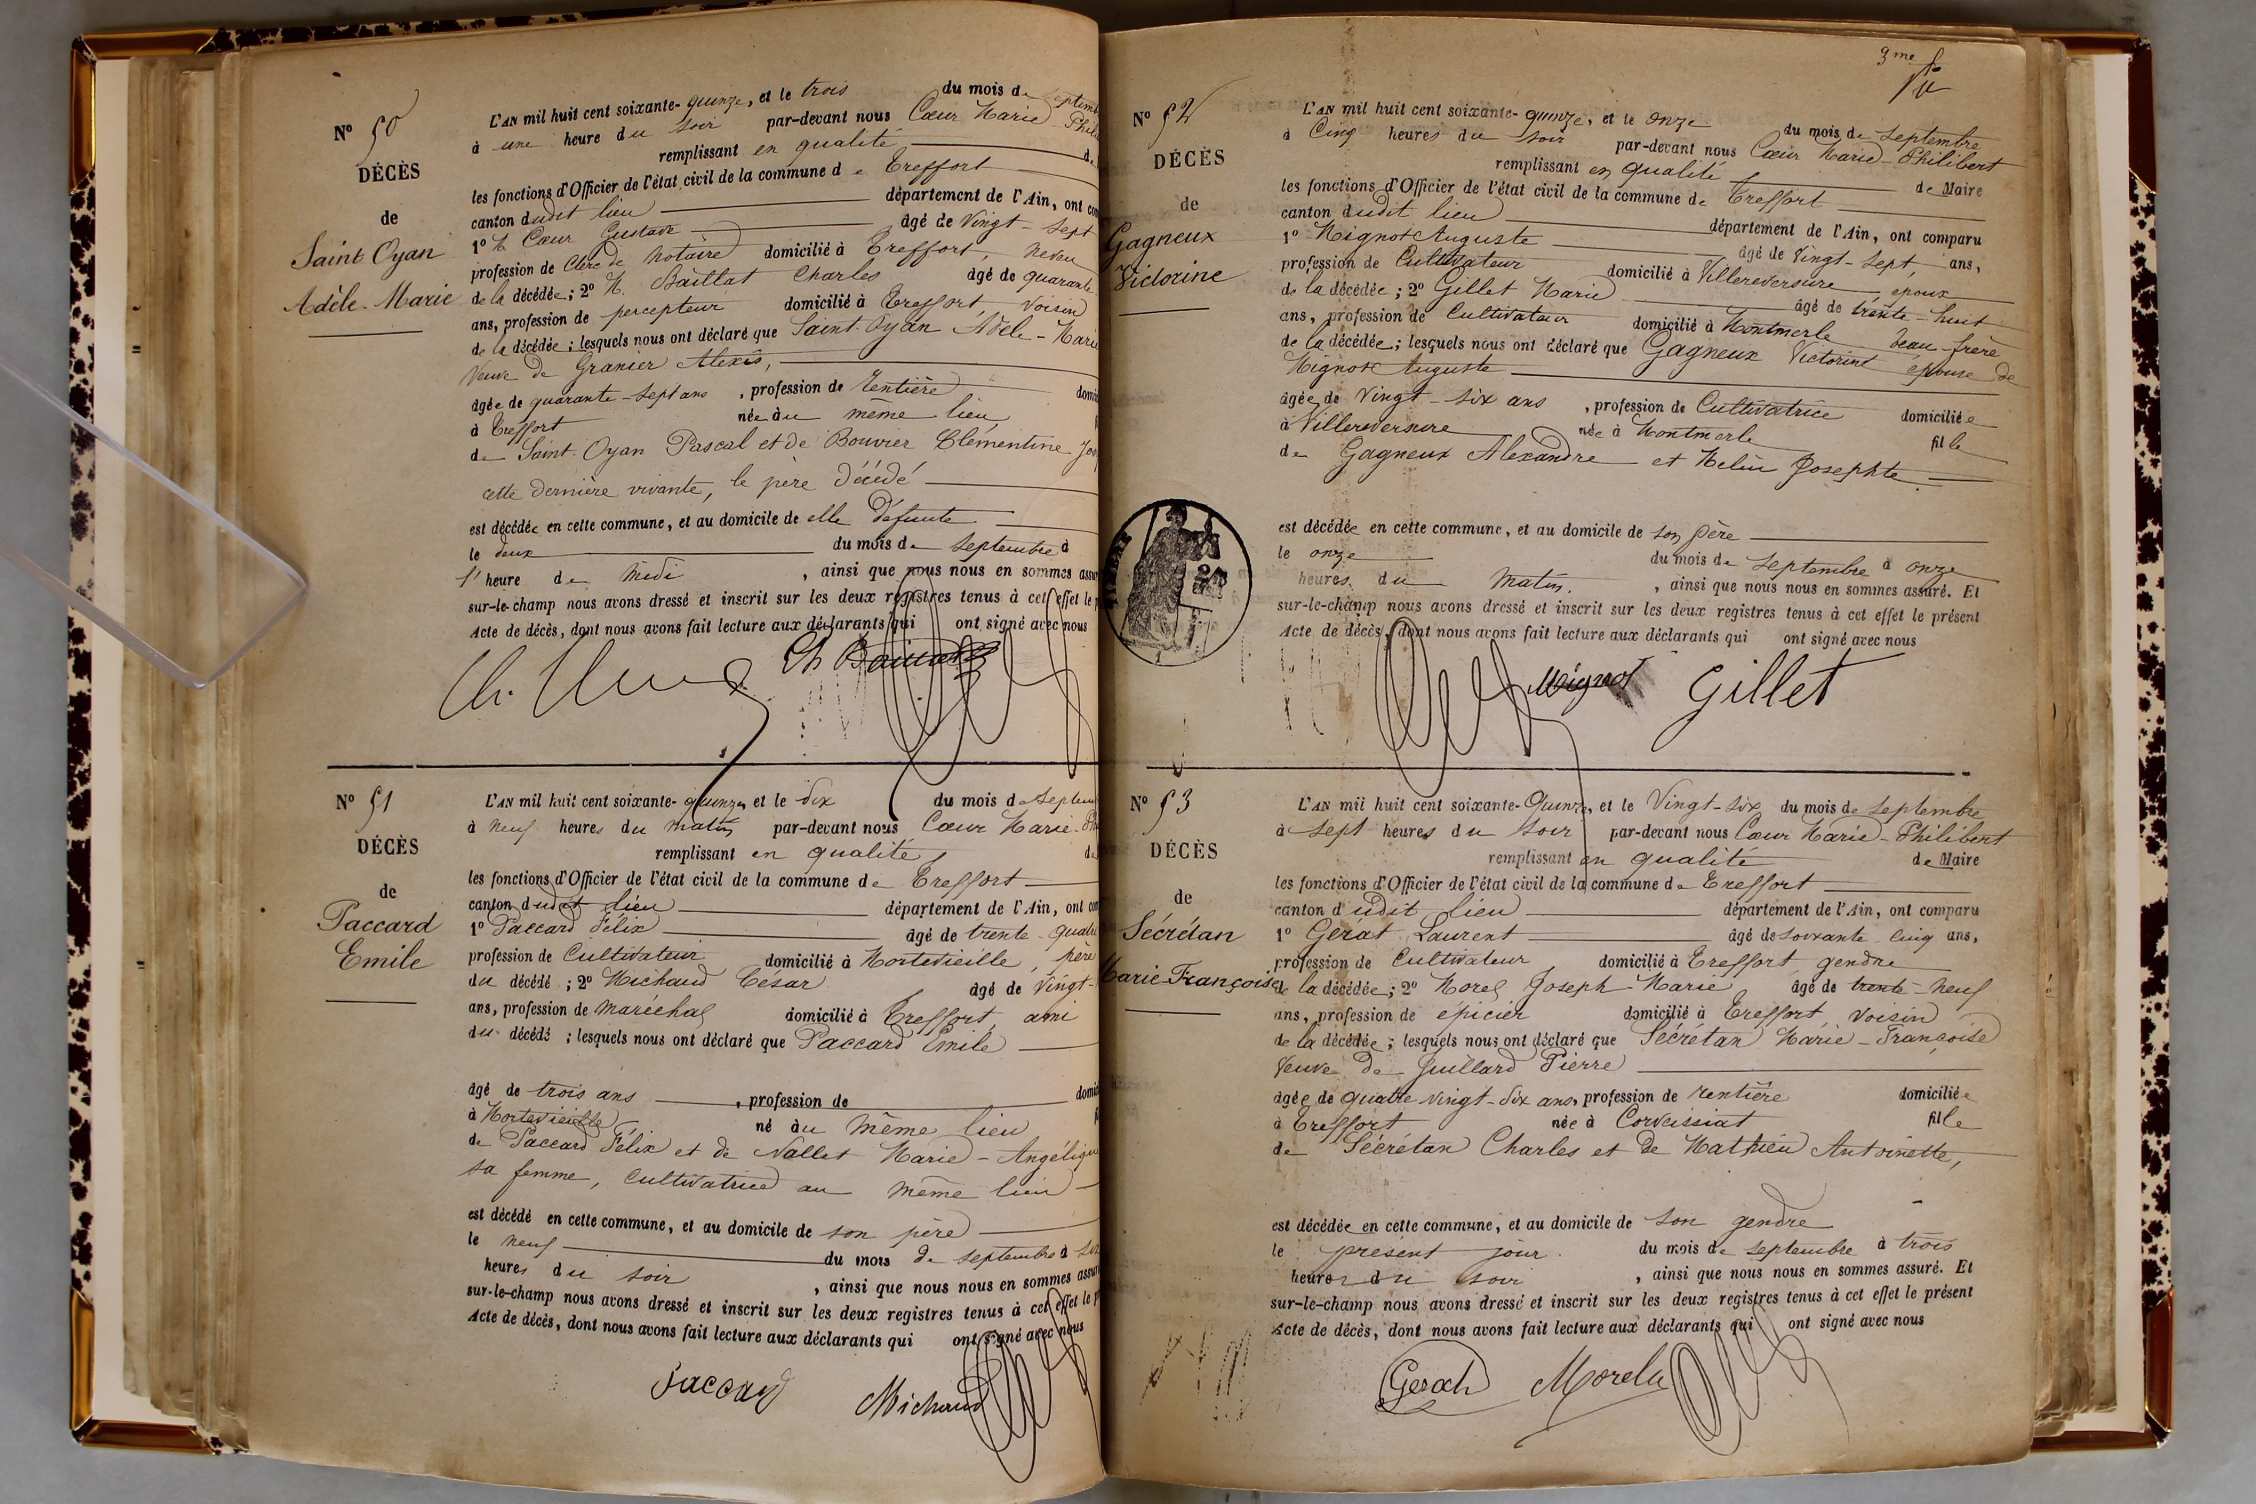 N° 50
DÉCÈS
de
Saint Oyan
Adèle-Marie
L'AN mil huit cent soixante-quinze, et le trois du mois de septemb
à une heure du soir par-devant nous Cœur Marie Phili
remplissant en qualité de
les fonctions d'Officier de l'état civil de la commune de Treffort
canton dudit lieu département de l'Ain, ont com
1° M. Cœur Gustave âgé de vingt-sept
profession de clerc de notaire domicilié à Treffort, neveu
de la décédée; 2° M. Baillat Charles âgé de quarante
ans, profession de percepteur domicilié à Treffort, voisin
de la décédée; lesquels nous ont déclaré que Saint-Oyan Adèle-Marie
veuve de Granier Alexis,
âgée de quarante-sept ans, profession de rentière domici
à Treffort née au même lieu
de Saint-Oyan Pascal et de Bouvier Clémentine
cette dernière vivante, le père décédé
est décédée en cette commune, et au domicile de elle défunte
le deux du mois de septembre à
l'heure de midi, ainsi que nous nous en sommes assu
sur-le-champ nous avons dressé et inscrit sur les deux registres tenus à cet effet le p
Acte de décès, dont nous avons fait lecture aux déclarants qui ont signé avec nous
N° 51
DÉCÈS
de
Paccard
Emile
L'AN mil huit cent soixante-quinze, et le dix du mois de septem
à neuf heures du matin par-devant nous Cœur Marie-Ph
remplissant en qualité de
les fonctions d'Officier de l'état civil de la commune de Treffort
canton dudit lieu département de l'Ain, ont com
1° Paccard Félix âgé de trente-quatre
profession de cultivateur domicilié à Mortevieille, père
du décédé; 2° Michaud César âgé de vingt-
ans, profession de maréchal domicilié à Treffort, ami
du décédé; lesquels nous ont déclaré que Paccard Emile
âgé de trois ans, profession de domici
à Mortevieille né au même lieu
de Paccard Félix et de Nallet Marie-Angélique
sa femme, cultivatrice au même lieu
est décédé en cette commune, et au domicile de son père
le neuf du mois de septembre à
heures du soir, ainsi que nous nous en sommes assu
sur-le-champ nous avons dressé et inscrit sur les deux registres tenus à cet effet le p
Acte de décès, dont nous avons fait lecture aux déclarants qui ont signé avec nous
Paccard Michaud
9me
N° 52
DÉCÈS
de
Gagneux
Victorine
L'AN mil huit cent soixante-quinze, et le onze du mois de septembre
à cinq heures du soir par-devant nous Cœur Marie-Philibert
remplissant en qualité de Maire
les fonctions d'Officier de l'état civil de la commune de Treffort
canton dudit lieu département de l'Ain, ont comparu
1° Mignot Auguste âgé de vingt-sept ans,
profession de cultivateur domicilié à Villereversure, époux
de la décédée; 2° Gillet Marie âgé de trente-huit
ans, profession de cultivateur domicilié à Montmerle beau-frère
de la décédée; lesquels nous ont déclaré que Gagneux Victorine épouse de
Mignot Auguste
âgée de vingt-six ans, profession de cultivatrice domiciliée
à Villereversure née à Montmerle fille
de Gagneux Alexandre et Melin Josephte
est décédée en cette commune, et au domicile de son père
le onze du mois de septembre à onze
heures du matin, ainsi que nous nous en sommes assuré. Et
sur-le-champ nous avons dressé et inscrit sur les deux registres tenus à cet effet le présent
Acte de décès, dont nous avons fait lecture aux déclarants qui ont signé avec nous
Mignot Gillet
N° 53
DÉCÈS
de
Sécrétan
Marie-Françoise
L'AN mil huit cent soixante-quinze, et le vingt-six du mois de septembre
à sept heures du soir par-devant nous Cœur Marie-Philibert
remplissant en qualité de Maire
les fonctions d'Officier de l'état civil de la commune de Treffort
canton dudit lieu département de l'Ain, ont comparu
1° Gérat Laurent âgé de soixante-cinq ans,
profession de cultivateur domicilié à Treffort gendre
de la décédée; 2° Morel Joseph-Marie âgé de trente-neuf
ans, profession de épicier domicilié à Treffort, voisin
de la décédée; lesquels nous ont déclaré que Sécrétan Marie-Françoise
veuve de Juillard Pierre
âgée de quatre-vingt-dix ans, profession de rentière domiciliée
à Treffort née à Corveissiat fille
de Sécrétan Charles et de Mathieu Antoinette,
est décédée en cette commune, et au domicile de son gendre
le présent jour. du mois de septembre à trois
heures du soir, ainsi que nous nous en sommes assuré. Et
sur-le-champ nous avons dressé et inscrit sur les deux registres tenus à cet effet le présent
Acte de décès, dont nous avons fait lecture aux déclarants qui ont signé avec nous